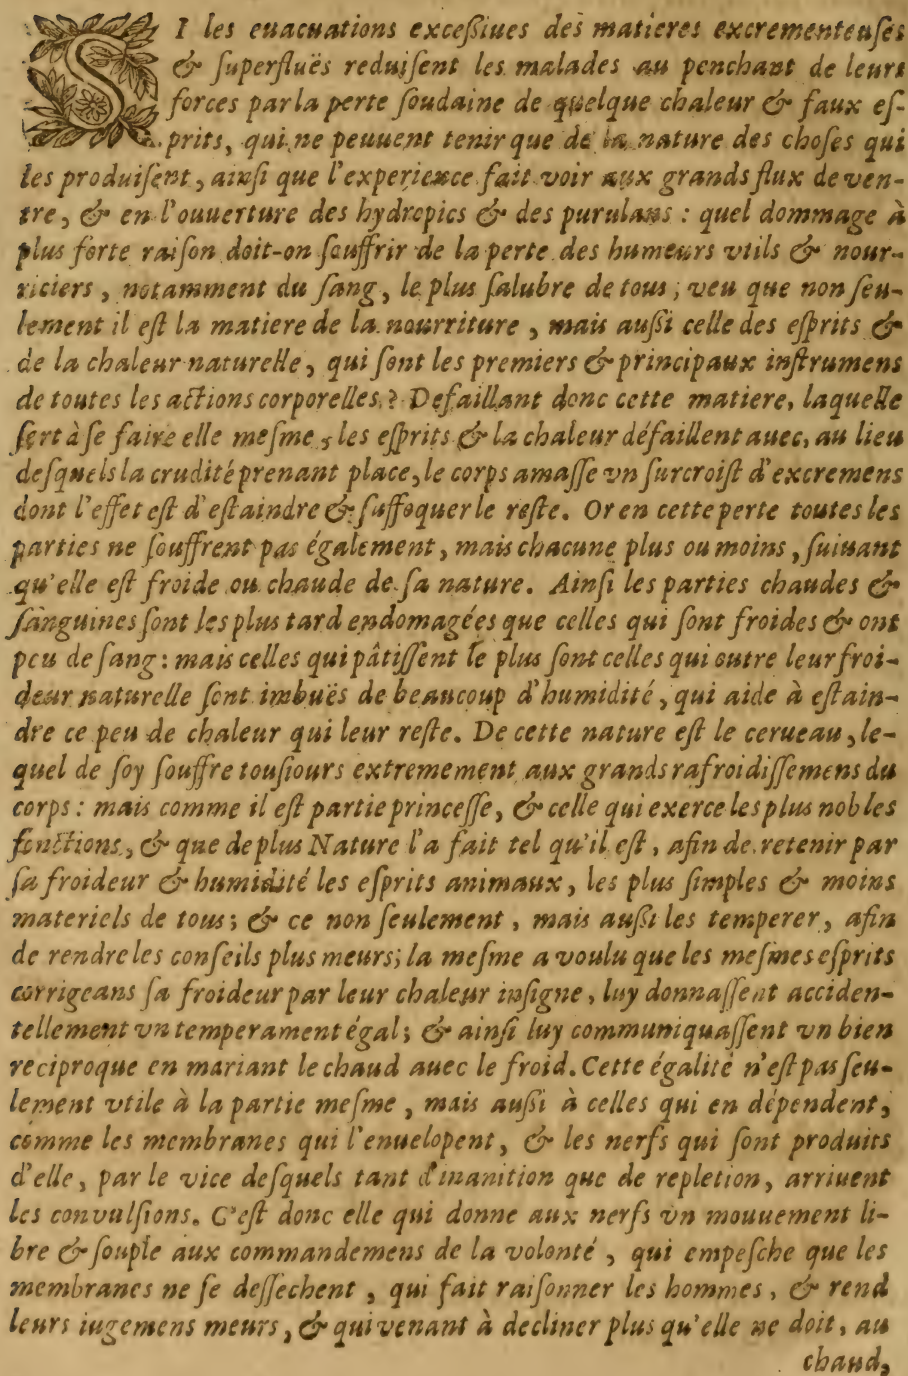 SI les euacuations exceſsiues des matieres excrementeuſes
& ſuperfluës reduiſent les malades au penchant de leurs
forces par la perte ſoudaine de quelque chaleur & faux eſ-
prits, qui ne peuuent tenir que de la nature des choſes qui
les produiſent, ainſi que l'experience fait voir aux grands flux de ven-
tre, & en l'ouuerture des hydropics & des purulans : quel dommage à
plus forte raiſon doit-on ſouffrir de la perte des humeurs vtils & nour-
riciers, notamment du ſang, le plus ſalubre de tous; veu que non ſeu-
lement il eſt la matiere de la nourriture, mais auſsi celle des eſprits &
de la chaleur naturelle, qui ſont les premiers & principaux inſtrumens
de toutes les actions corporelles? Defaillant donc cette matiere, laquelle
ſert à ſe faire elle meſme, les eſprits & la chaleur défaillent auec, au lieu
deſquels la crudité prenant place, le corps amaſſe vn ſurcroiſt d'excremens
dont l'effet eſt d'eſtaindre & ſuffoquer le reſte. Or en cette perte toutes les
parties ne ſouffrent pas également, mais chacune plus ou moins, ſuiuant
qu'elle eſt froide ou chaude de ſa nature. Ainſi les parties chaudes &
ſanguines ſont les plus tard endomagées que celles qui ſont froides & ont
peu de ſang : mais celles qui pâtiſſent le plus ſont celles qui outre leur froi-
deur naturelle ſont imbuës de beaucoup d'humidité, qui aide à eſtain-
dre ce peu de chaleur qui leur reſte. De cette nature eſt le cerueau, le-
quel de ſoy ſouffre touſiours extremement aux grands rafroidiſſemens du
corps : mais comme il eſt partie princeſſe, & celle qui exerce les plus nobles
fonctions, & que de plus Nature l'a fait tel qu'il eſt, afin de retenir par
ſa froideur & humidité les eſprits animaux, les plus ſimples & moins
materiels de tous; & ce non ſeulement, mais auſsi les temperer, afin
de rendre les conſeils plus meurs; la meſme a voulu que les meſmes eſprits
corrigeans ſa froideur par leur chaleur inſigne, luy donnaſſent acciden-
tellement vn temperament égal; & ainſi luy communiquaſſent vn bien
reciproque en mariant le chaud auec le froid. Cette égalité n'eſt pas ſeu-
lement vtile à la partie meſme, mais auſsi à celles qui en dépendent,
comme les membranes qui l'enuelopent, & les nerfs qui ſont produits
d'elle, par le vice deſquels tant d'inanition que de repletion, arriuent
les convulſions. C'eſt donc elle qui donne aux nerfs vn mouuement li-
bre & ſouple aux commandemens de la volonté, qui empeſche que les
membranes ne ſe deſſechent, qui fait raiſonner les hommes, & rend
leurs iugemens meurs, & qui venant à decliner plus qu'elle ne doit, au
chaud,